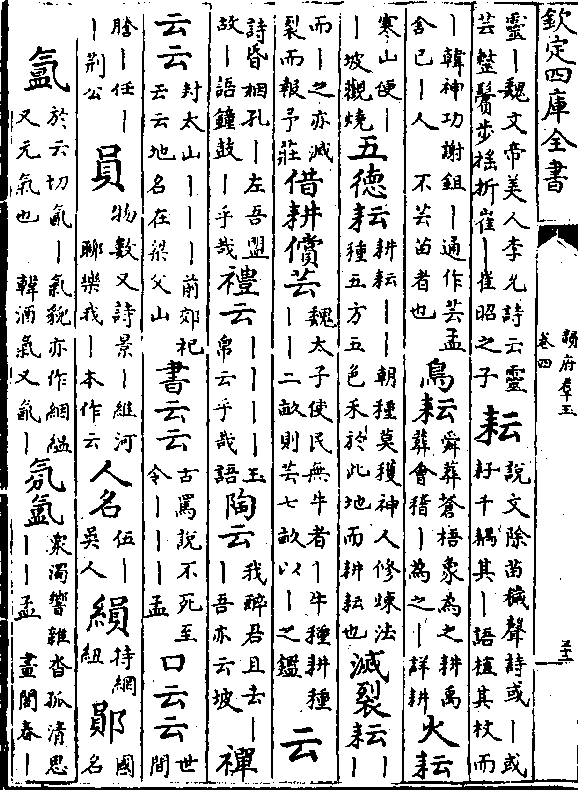 欽定四庫全書
韻府羣玉
卷四
靈｜魏文帝美人李允詩云靈芸整鬟步摇折崔｜崔昭之子 耘 說文除苗穢聲詩或｜或耔千耦其｜語植其杖而
｜韓神功謝鉏｜通作芸孟舍已｜人 不芸苗者也 鳥耘 舜葬蒼梧象為之耕禹葬會稽｜為之｜詳耕 火耘
寒山使｜｜坡觀燒 五德耘 耕耘｜｜朝種莫穫神人修煉法種五方五色禾於此地而耕耘也 滅裂耘 ｜｜
而｜之亦滅裂而報予莊 借耕償芸 魏太子使民無牛者｜牛種耕種｜｜二畝則芸七畝以｜之鑑 云
詩昏椢孔｜左吾盟故｜語鐘鼓｜乎哉 禮云 ｜｜｜｜玉帛云乎哉語 陶云 我醉君且去｜｜吾亦云坡 禪
云云 封太山｜｜｜｜前郊祀云云地名在梁父山 書云云 古罵說不死至令｜｜｜孟 口云云 世間
膾｜任｜｜荆公 員 物數又詩景｜維河聊樂我｜本作云 人名 伍｜吳人 縜 持網紐 鄖 國名
氳 於云切氤｜氣貌亦作絪緼又元氣也 韓酒氣又氤｜ 氛氳 衆濁響雜沓孤清思｜｜孟 畫閣春｜